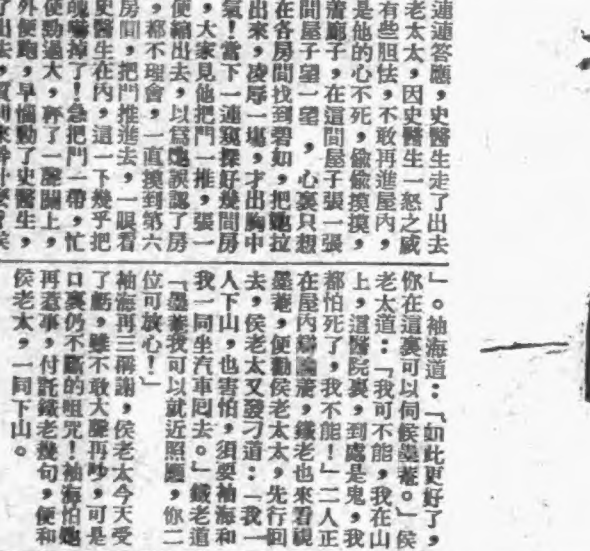 連連答應,史醫生走了出去
老太太,因史醫生一怒之威
有些胆怯,不敢再進屋內,
是他的心不死,偷偷摸摸,
着廊子,在這間屋子張一張
間屋子望一望,心裏只想
在各房間找到碧如,把她拉
出來,凌辱一塲,才出胸中
氣!當下一連窺探好幾間房
,大家見他把門一推,張一
便縮出去,以爲她誤認了房
,都不理會,一直摸到第六
房間,把門推進去,一眼看
史醫生在內,這一下幾乎把
魄嚇掉了!急把門一帶,忙
使勁過大,砰了一聲關上,
外便跑,早惱動了史醫生,
了出去,
」。袖海道:「如此更好了,
你在這裏可以伺候墨菴。」侯
老太道:「我可不能,我在山
上,這醫院裏,到處是鬼,我
都怕死了,我不能!」二人正
在屋內辯論着,鐵老也來看視
墨菴,便勸侯老太太,先行回
去,侯老太又發刁道:「我一
人下山,也害怕,須要袖海和
我一同坐汽車囘去。」鐵老道
「墨菴我可以就近照顧,你二
位可放心!」
袖海再三稱謝,侯老太今天受
了虧,雖不敢大聲再吵,可是
口裏仍不斷的咀咒!袖海怕她
再惹事,付託鐵老幾句,便和
侯老太,一同下山。